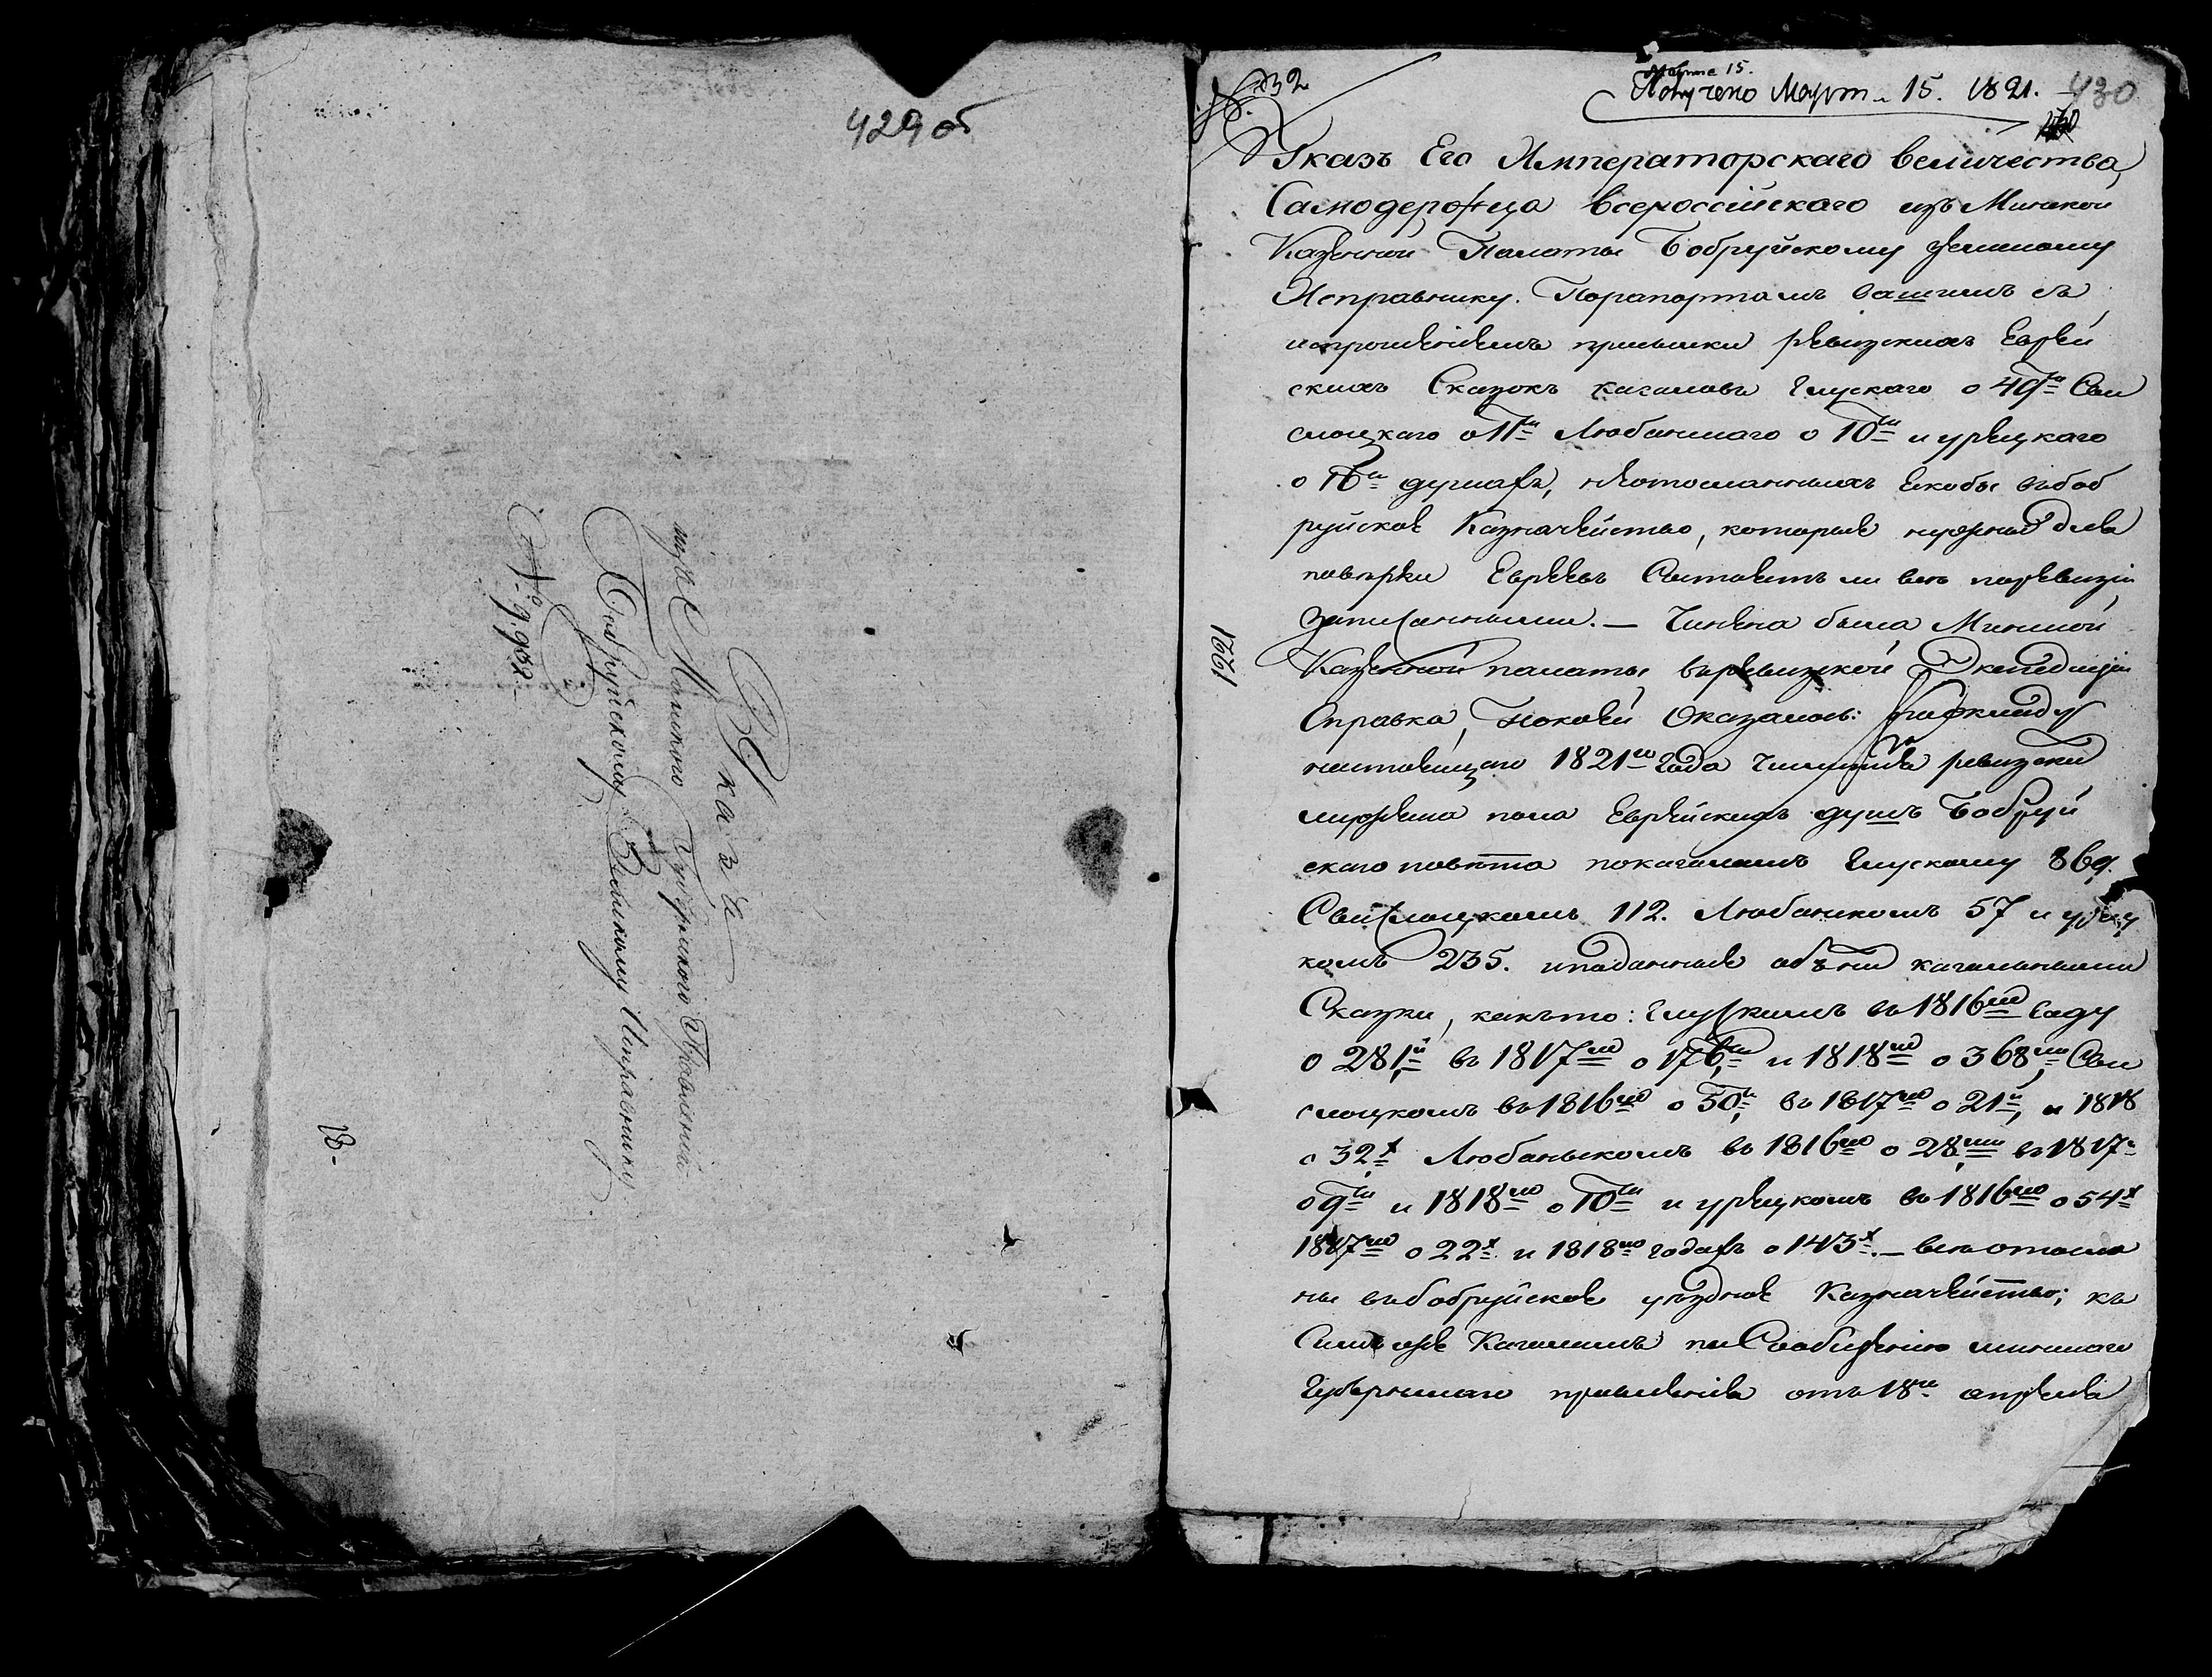 429 об
Указъ
изъ Минского Губернского Правления
Бобруйскому Земскому Исправнику
№ 9932
18.
232
Марта 15.
Получено Март 15. 1821.
430
Указъ Его Императорскаго величества,
Самодержца всероссійскаго изъ Минской
Казенной Палаты Бобруйскому земскому
Исправнику. По рапортамъ вашимъ съ
испрошеніемъ присылки ревизскихъ Еврей
скихъ Сказокъ кагаловъ Глускаго о 49ти Сви
слоцкаго о 11ти Любанскаго о 10ти и урецкаго
о 16ти душахъ, неотосланныхъ якобы въ боб
руйское Казначейство, которые нужны для
поверки Евреевъ Состоятъ ли все по ревизіи
записанными. — Чинена была Минской
Казенной палаты въ ревизской Экспедиціи
Справка, по коей Оказалось:
настоящаго 1821го года числится ревизски
мужеска пола Еврейскихъ душъ Бобруй
скаго повѣта по кагаламъ Глускому 869.
Свислоцкомъ 112. Любанскомъ 57 и урец
комъ 235. и поданные объ ни кагальными
Сказки, какъ то: Глускимъ въ 1816мъ году
о 281й въ 1817мъ о 176ти и 1818мъ о 368ми Сви
слоцкомъ въ 1816мъ о 50ти въ 1817мъ о 21й, и 1818
о 32х Любаньскомъ въ 1816мъ о 28ми въ 1817
о 9ти и 1818мъ о 10ти и урецкомъ въ 1816мъ о 54х
1817мъ о 22х и 1818мъ годахъ о 143х. — все отосла
ны въ бобруйское уѣздное Казначейство; къ
Симъ же Кагаламъ по Сообщению минскаго
Губернскаго правленія отъ 18го апреля
1221